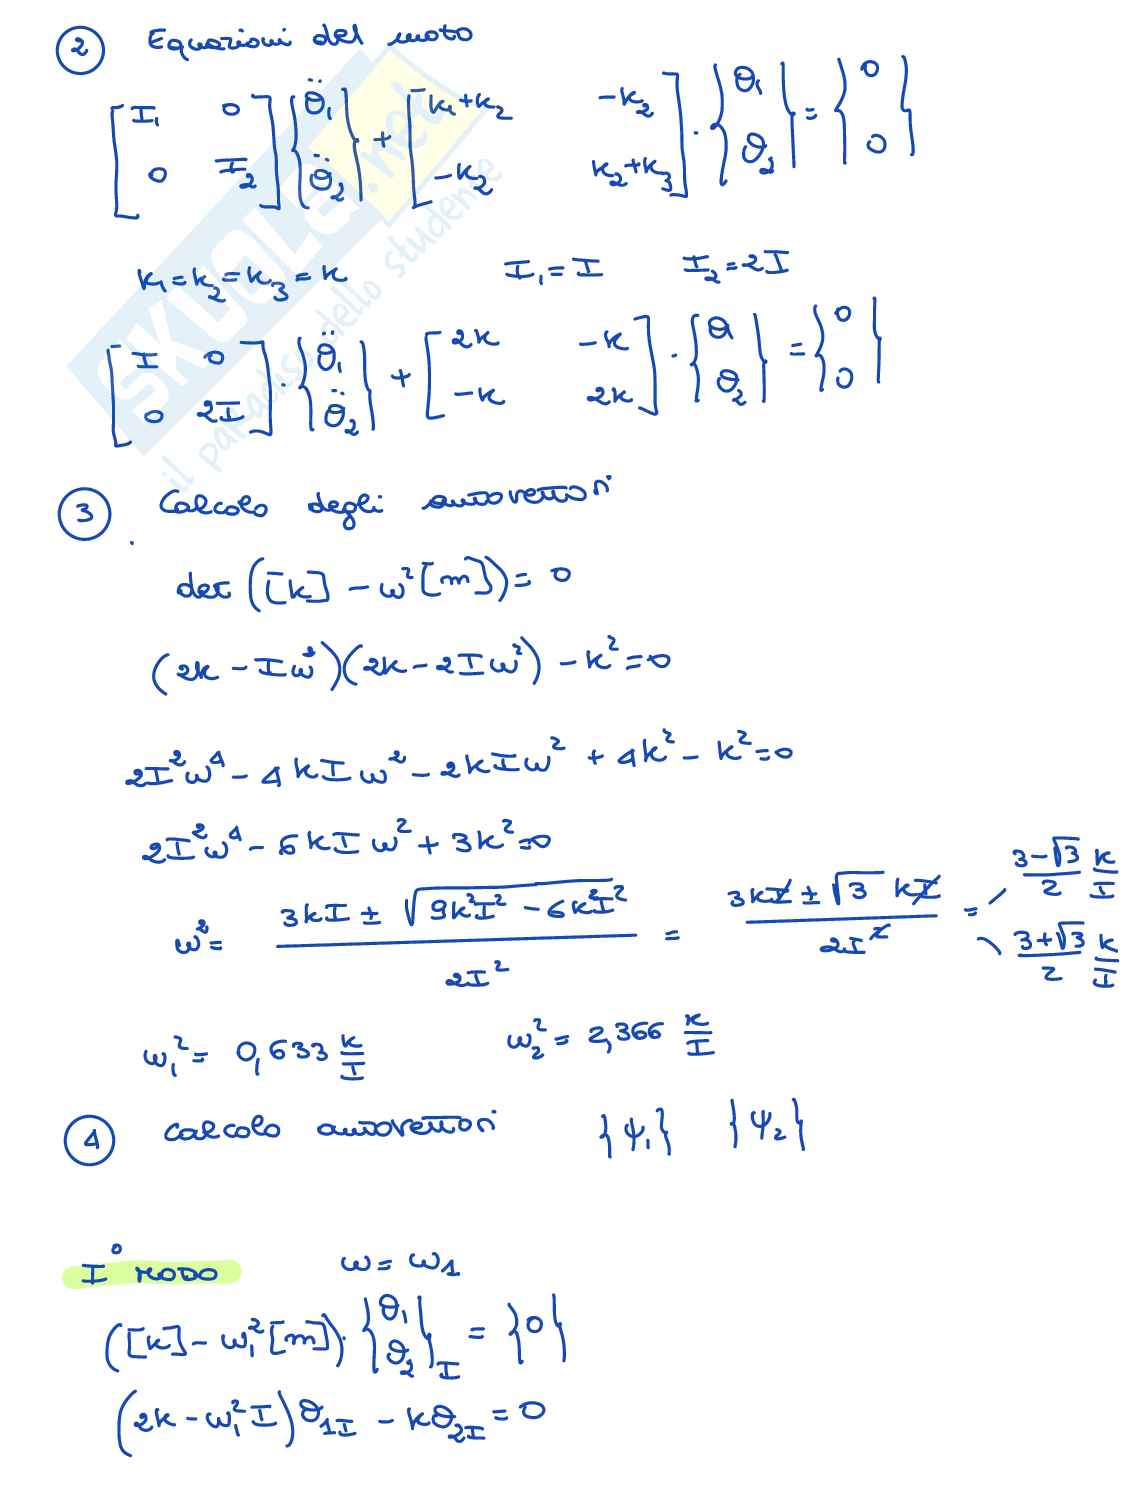 2 Equazioni del moto
[I₁ 0; 0 I₂] {θ̈₁; θ̈₂} + [k₁+k₂ -k₂; -k₂ k₂+k₃] · {θ₁; θ₂} = {0; 0}
k₁ = k₂ = k₃ = k I₁ = I I₂ = 2I
[I 0; 0 2I] · {θ̈₁; θ̈₂} + [2k -k; -k 2k] · {θ₁; θ₂} = {0; 0}
3 Calcolo degli autovettori
det ([k] - ω²[m]) = 0
(2k - Iω²)(2k - 2Iω²) - k² = 0
2I²ω⁴ - 4kIω² - 2kIω² + 4k² - k² = 0
2I²ω⁴ - 6kIω² + 3k² = 0
ω² = (3kI ± √(9k²I² - 6k²I²)) / 2I² = (3kI ± √3 kI) / 2I² = (3-√3)/2 k/I
(3+√3)/2 k/I
ω₁² = 0,633 k/I ω₂² = 2,366 k/I
4 Calcolo autovettori {ψ₁} {ψ₂}
I° MODO ω = ω₁
([k] - ω₁²[m]) · {θ₁; θ₂}_I = {0}
(2k - ω₁²I) θ₁I - kθ₂I = 0
SKUOLA.net
il paradiso dello studente